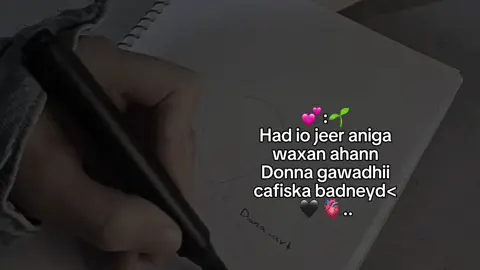 💕:🌱
Had io jeer aniga
waxan ahann
Donna gawadhii
cafiska badneyd<
🖤 🫀 ..